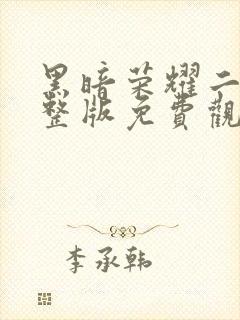 黑暗荣耀二
整版免費觀
李承韩